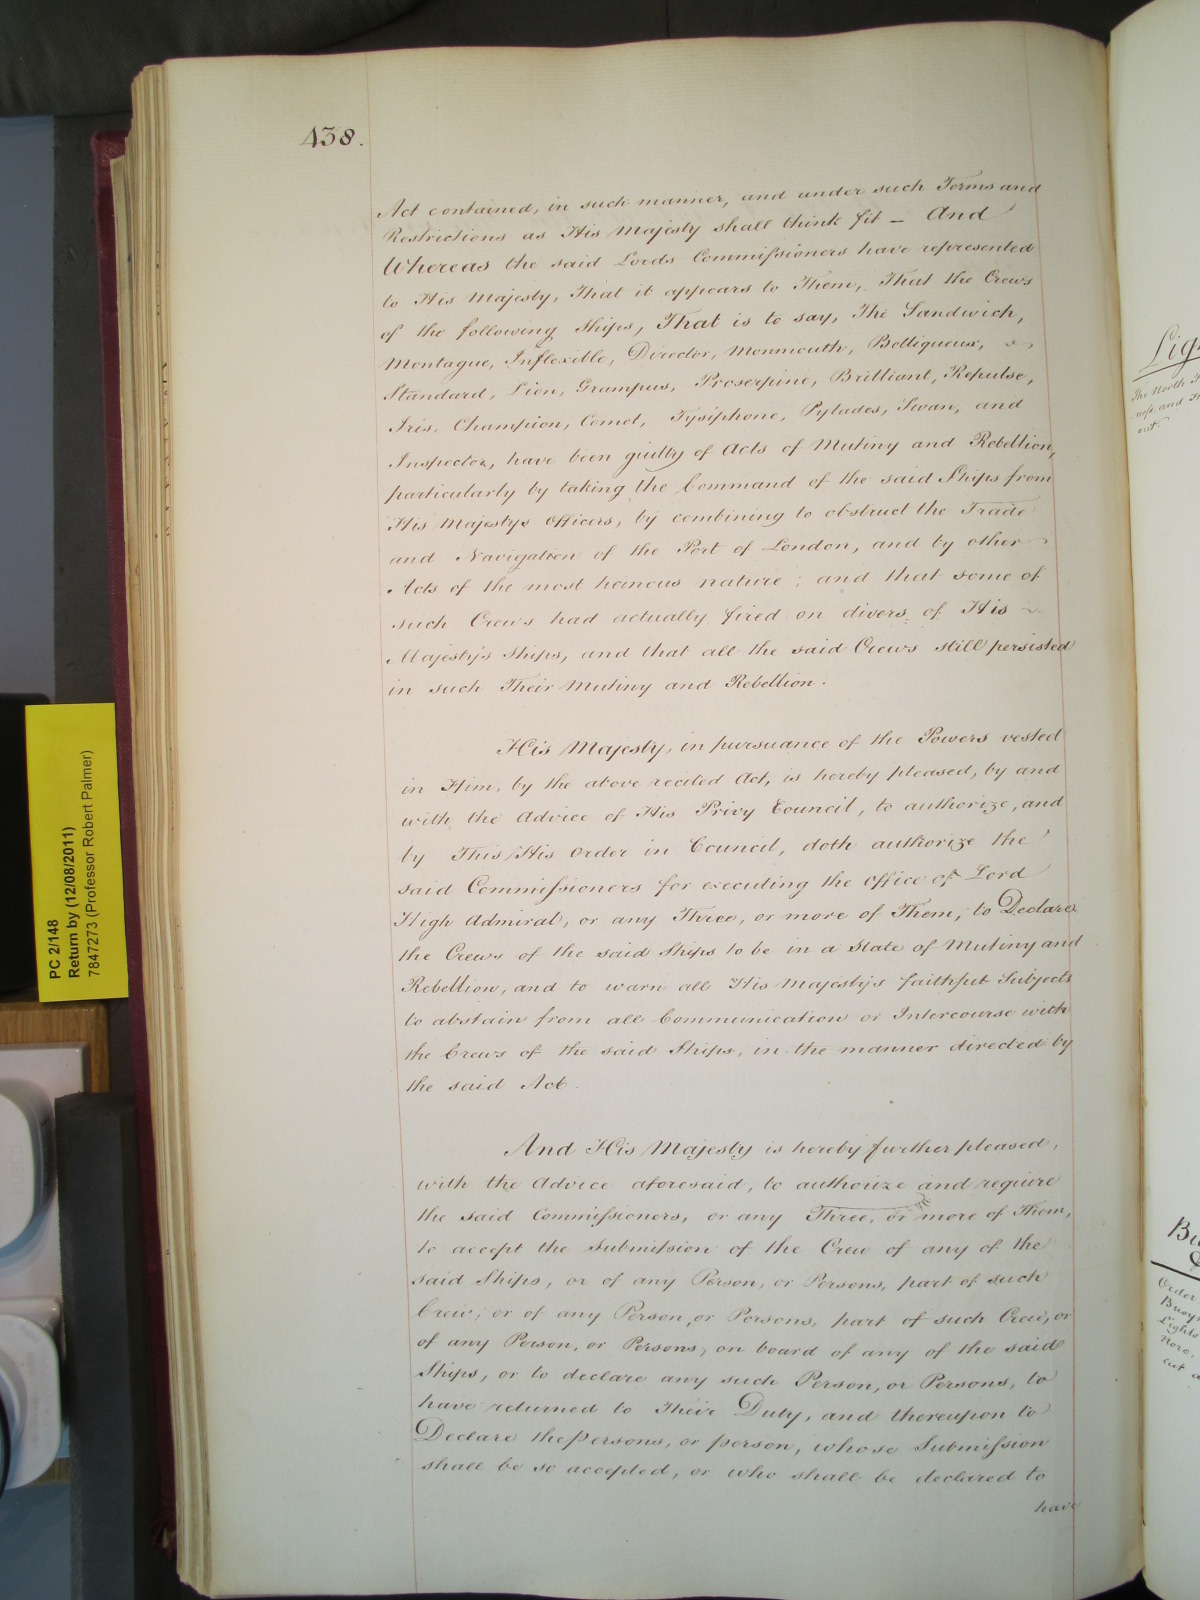 438.
Act contained, in such manner, and under such Terms and
Restrictions as His Majesty shall think fit — And
Whereas the said Lords Commissioners have represented
to His Majesty, That it appears to Them, That the Crews
of the following Ships, That is to say, The Sandwich,
Montague, Inflexible, Director, Monmouth, Belliqueux,
Standard, Lion, Grampus, Proserpine, Brilliant, Repulse,
Iris, Champion, Comet, Tysiphone, Pylades, Swan, and
Inspector, have been guilty of Acts of Mutiny and Rebellion,
particularly by taking the Command of the said Ships from
His Majestys Officers, by combining to obstruct the Trade
and Navigation of the Port of London, and by other
Acts of the most heinous nature; and that some of
such Crews had actually fired on divers of His
Majesty's Ships, and that all the said Crews still persisted
in such Their Mutiny and Rebellion.
His Majesty, in pursuance of the Powers vested
in Him, by the above recited Act, is hereby pleased, by and
with the Advice of His Privy Council, to authorize, and
by This His Order in Council, doth authorize the
said Commissioners for executing the Office of Lord
High Admiral, or any Three, or more of Them, to Declare
the Crews of the said Ships to be in a State of Mutiny and
Rebellion, and to warn all His Majesty's faithful Subjects
to abstain from all Communication or Intercourse with
the Crews of the said Ships, in the manner directed by
the said Act.
And His Majesty is hereby further pleased,
with the Advice aforesaid, to authorize and require
the said Commissioners, or any Three, or more of Them,
to accept the Submission of the Crew of any of the
said Ships, or of any Person, or Persons, part of such
Crew, or of any Person, or Persons, part of such Crew, or
of any Person, or Persons, on board of any of the said
Ships, or to declare any such Person, or Persons, to
have returned to Their Duty, and thereupon to
Declare the persons, or person, whose Submission
shall be so accepted, or who shall be declared to
have
PC 2/148
Return by (12/08/2011)
7847273 (Professor Robert Palmer)
The North
and
out
Order
Lights
Nore,
out